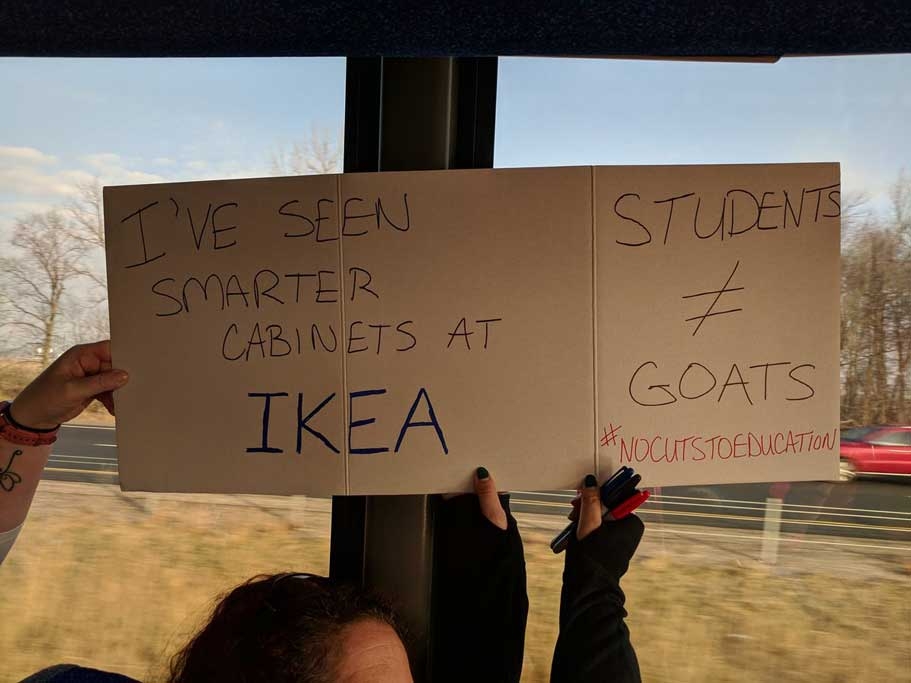 I'VE SEEN
SMARTER
CABINETS AT
IKEA
STUDENTS
≠
GOATS
#NOCUTSTOEDUCATION